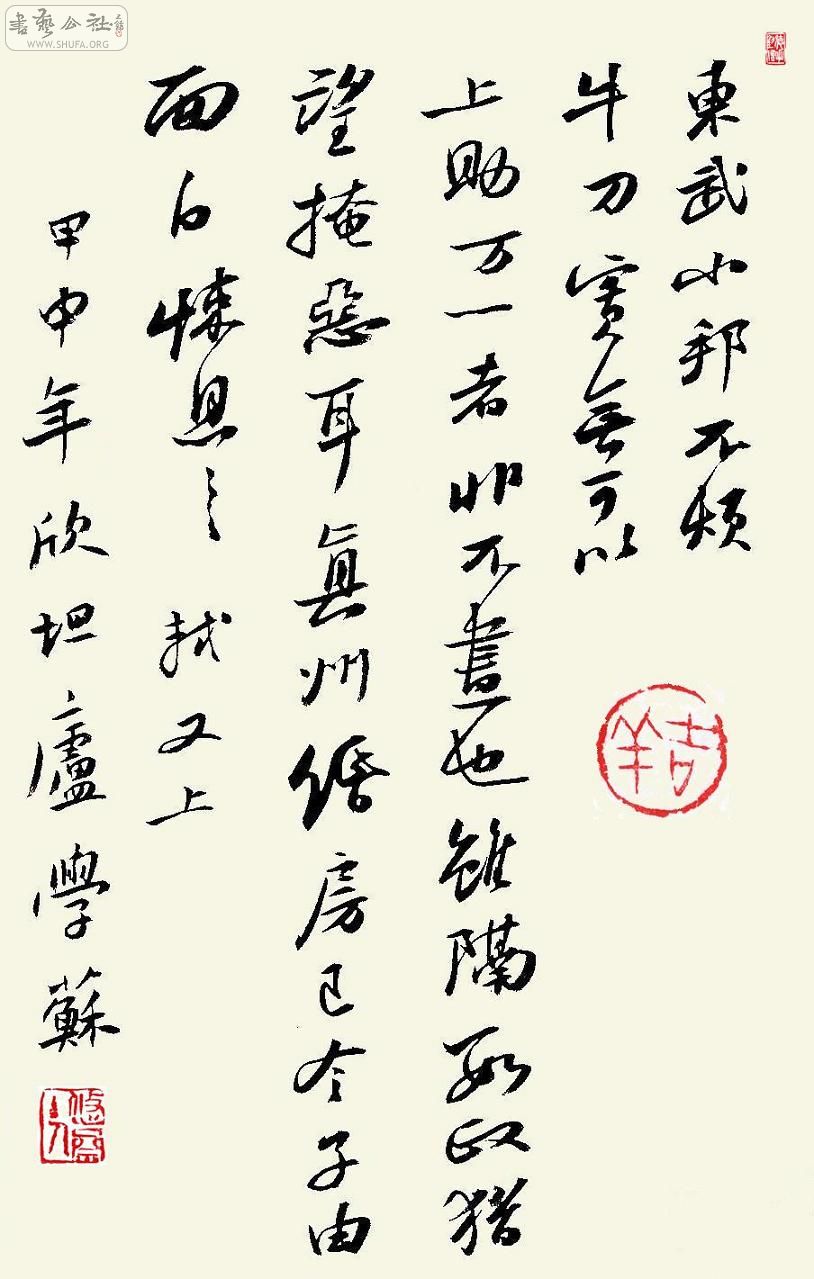 書藝公社
WWW.SHUFA.ORG
東武小邦不煩
牛刀實無可以
上助万一者非不盡也雖隔數政猶
望掩惡耳真州緡房已令子由
面白悚息〻軾又上
甲申年欣坦廬學蘇
吉羊